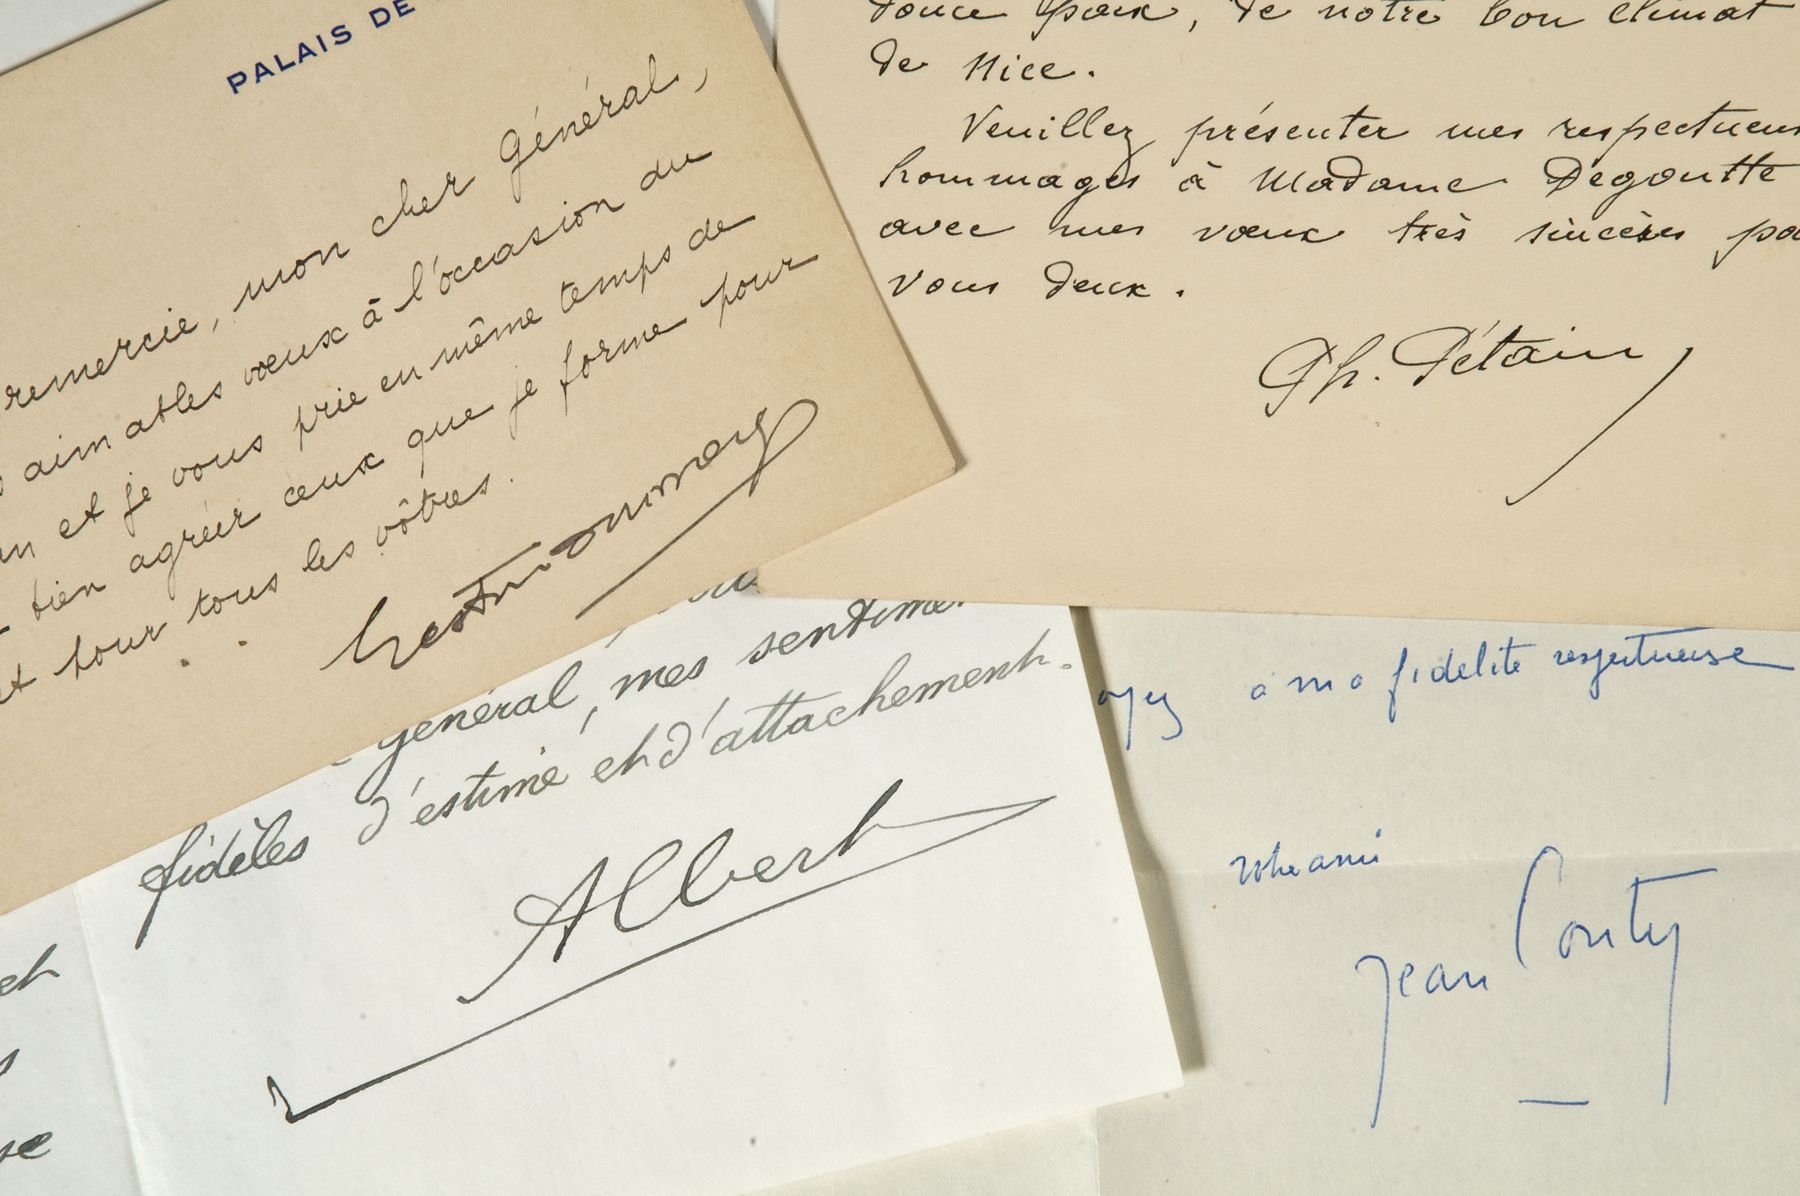 PALAIS DE
remercie, mon cher Général,
aimables vœux à l'occasion du
an et je vous prie en même temps de
bien agréer ceux que je forme pour
et pour tous les vôtres.
douce paix, de notre bon climat
de Nice.
Veuillez présenter mes respectueux
hommages à Madame Degoutte
avec mes vœux très sincères po
vous deux.
Ph. Pétain
général, mes sentimen
fidèles d'estime et d'attachement.
Albert
à ma fidélité respectueuse
votre ami
Jean
et
se